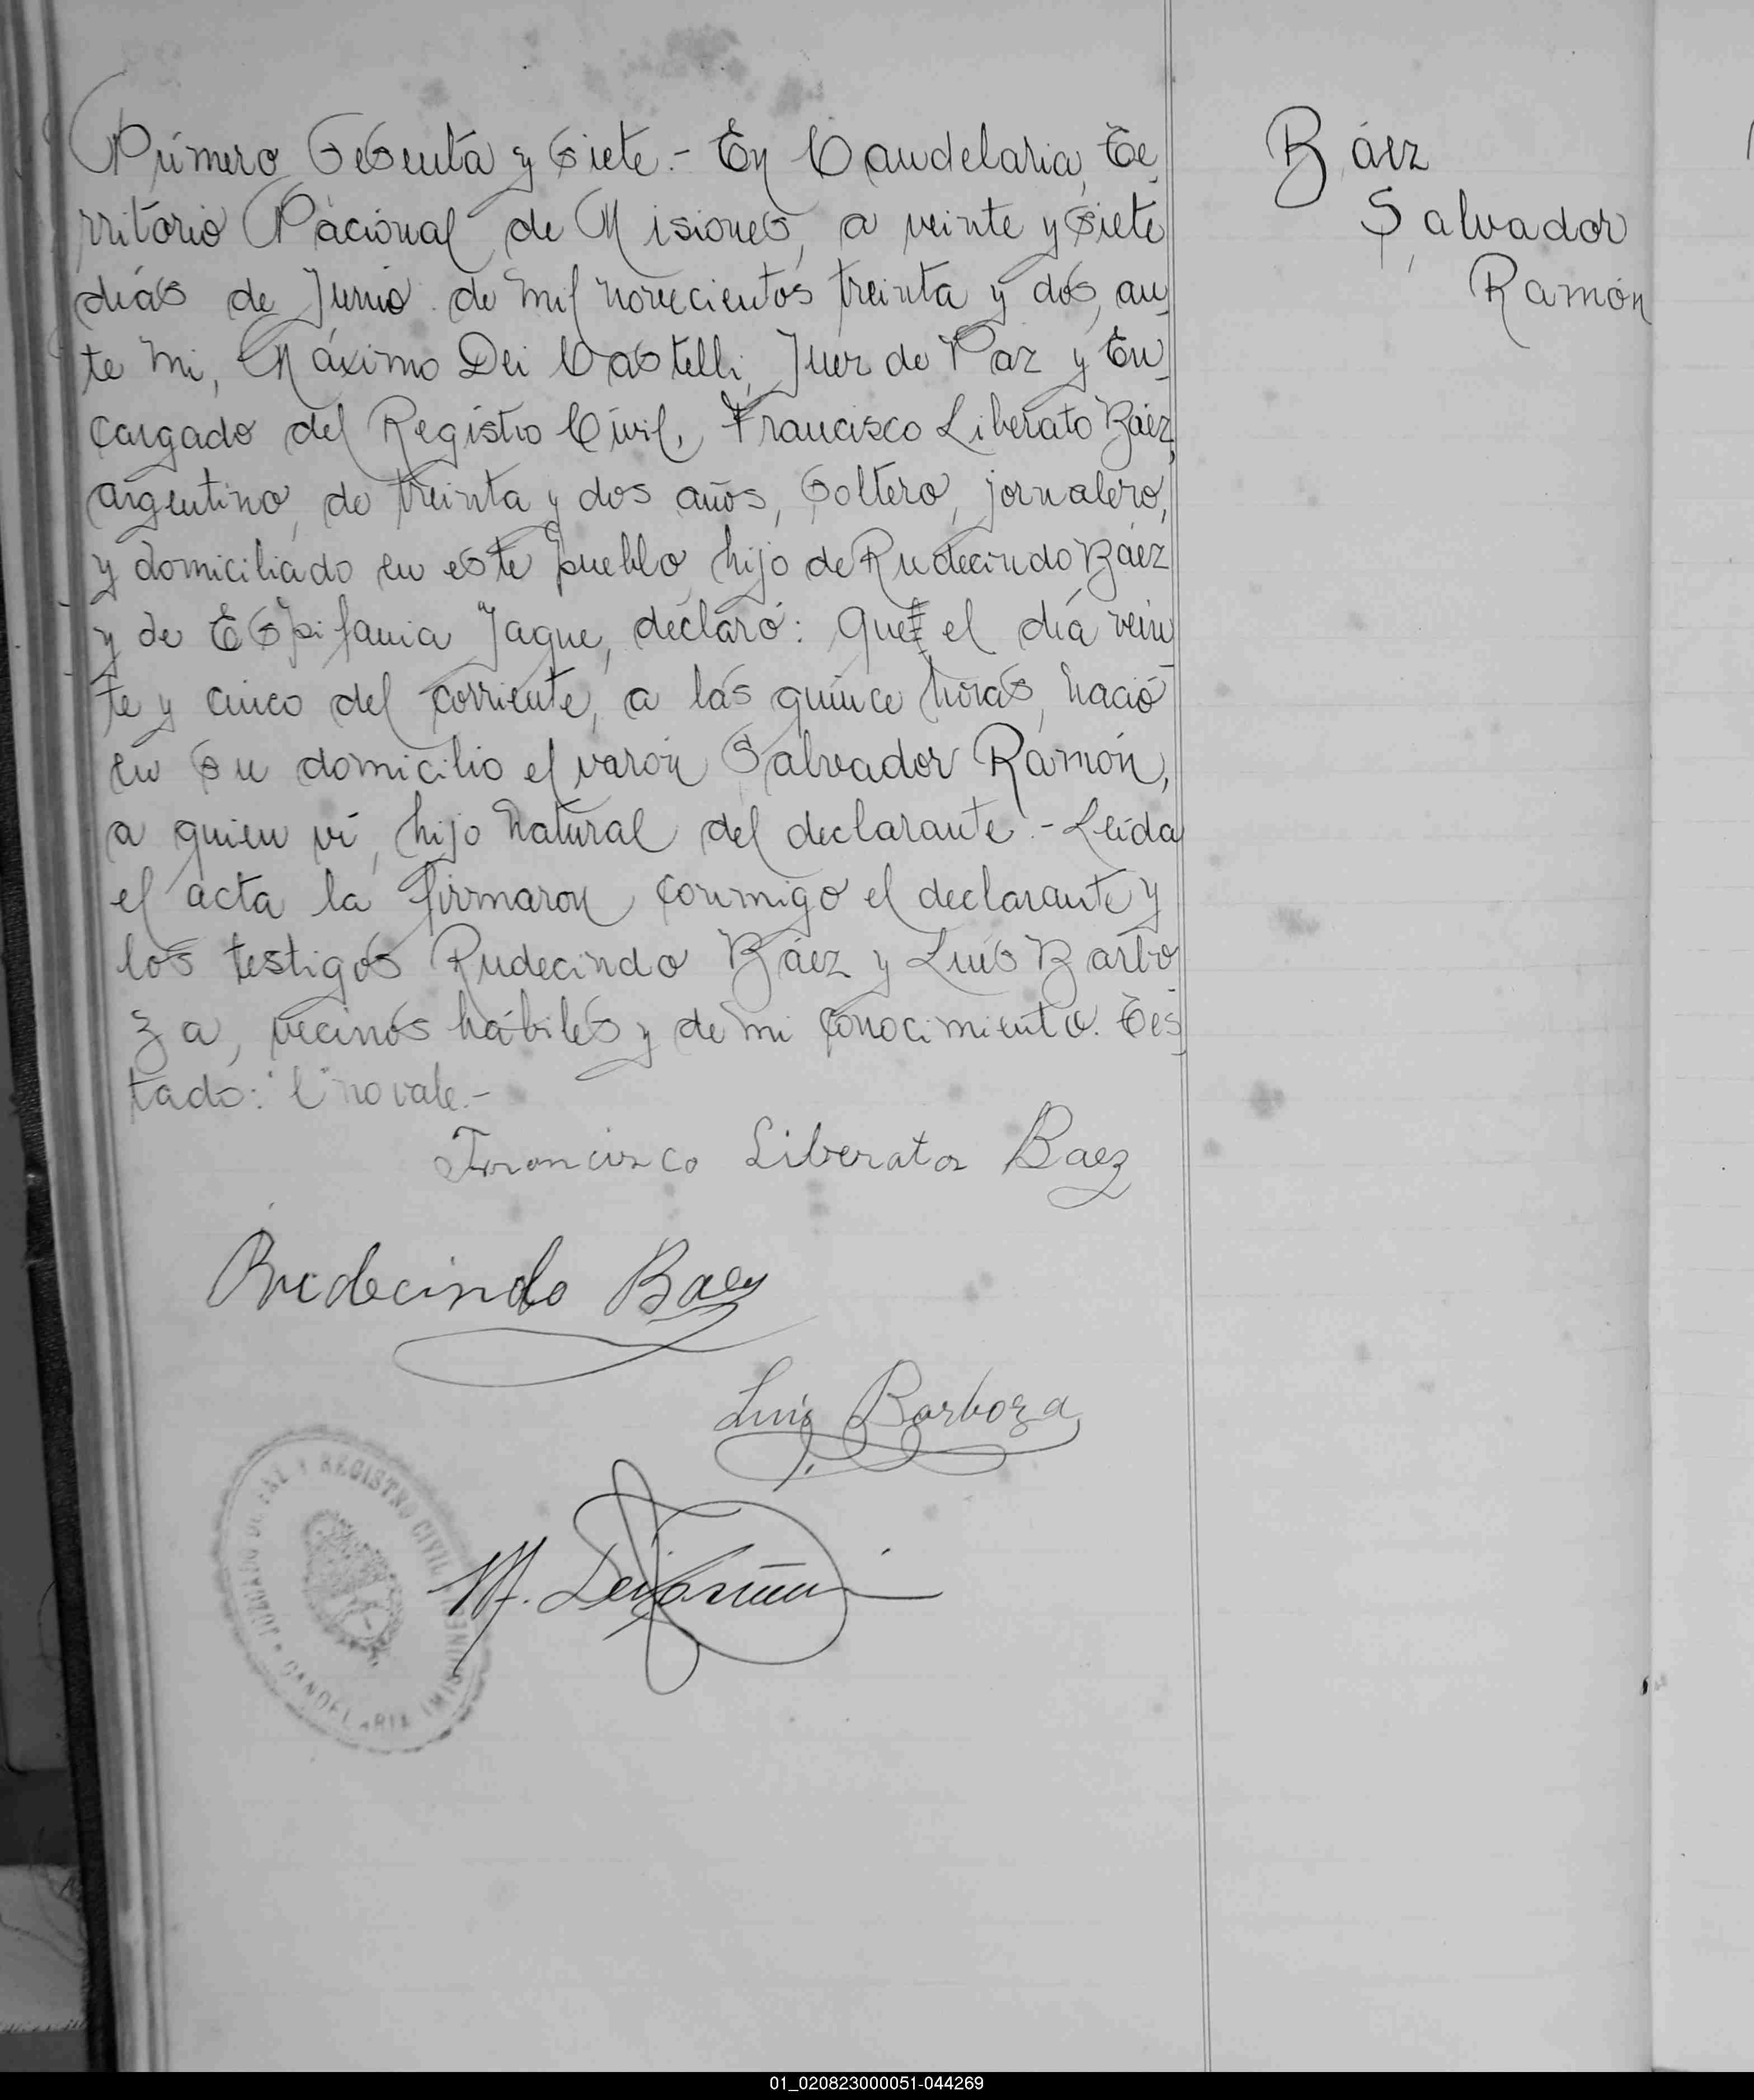 Número Sesenta y Siete.- En Candelaria, Te
rritorio Nacional de Misiones, a veinte y siete
días de Junio de mil novecientos treinta y dos, an
te mi, Máximo Dei Castelli, Juez de Paz y En
cargado del Registro Civil, Francisco Liberato Báez,
argentino, de treinta y dos años, Soltero, jornalero,
y domiciliado en este pueblo, hijo de Rudecindo Báez
y de Espifania Jaque, declaró: Que el día vein
te y cinco del corriente, a las quince horas, nació
en su domicilio el varón Salvador Ramón,
a quien vi, hijo natural del declarante.- Leída
el acta la firmaron conmigo el declarante y
los testigos Rudecindo Báez y Luís Barbo
za, vecinos hábiles y de mi conocimiento. Tes
tado: "l" no vale.-
Francisco Liberato Baez
Rudecindo Baez
Luis Barboza
M. Dei Castelli
JUZGADO DE PAZ Y REGISTRO CIVIL
CANDELARIA (MISIONES)
Báez
Salvador
Ramón
01_020823000051-044269